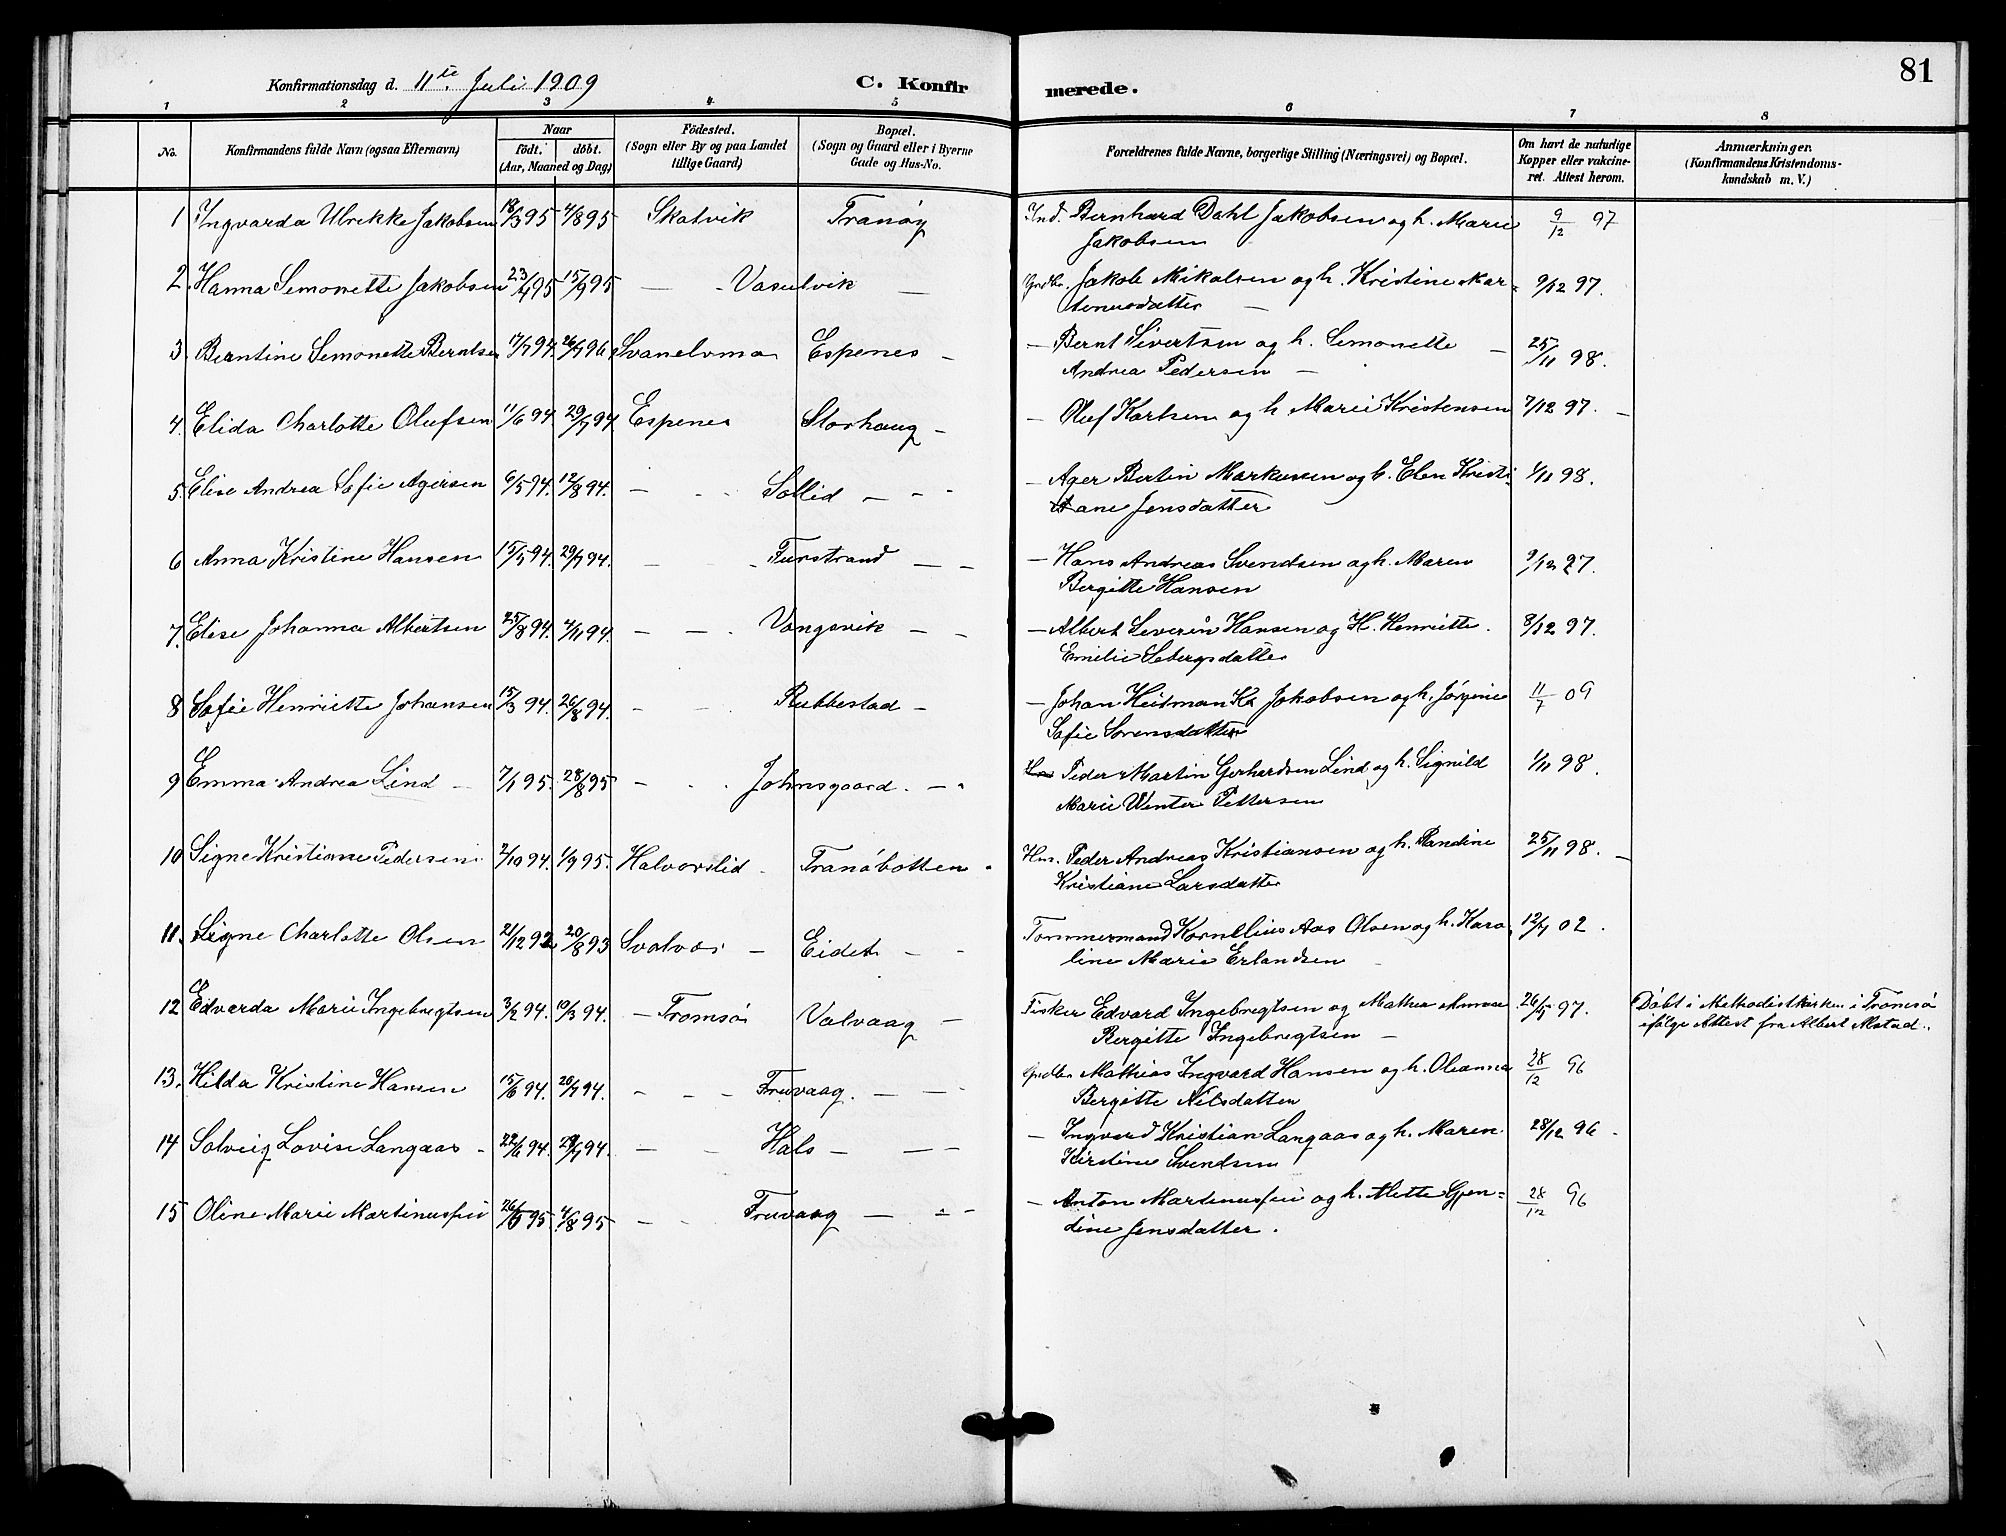 81
Konfirmationsdag d. 11te Juli 1909 C. Konfirmerede.
1 2 3 4 5 6 7 8
No. Konfirmandens fulde Navn (ogsaa Efternavn) Naar født. døbt. (Aar, Maaned og Dag) Födested. (Sogn eller By og paa Landet tillige Gaard) Bopæl. (Sogn og Gaard eller i Byerne Gade og Hus-No. Forældrenes fulde Navne, borgerlige Stilling (Næringsvei) og Bopæl. Om havt de naturlige Kopper eller vakcineret. Attest herom. Anmærkninger. (Konfirmandens Kristendomskundskab m. V.)
1 Ingvarda Ulrekke Jakobsen 18/3 95 4/8 95 Skatvik Tranøy Ind. Bernhard Dahl Jakobsen og h. Marie 9/12 97
Jakobsen
2. Hanna Semonette Jakobsen 23/4 95 15/9 95 — - Vasulvik — Grdbr. Jakob Mikalsen og h. Kristine Mar= 9/12 97.
tenusdatter —
3. Berntine Semonette Berntsen 17/7 94. 26/7 96 Svanelvmo Espenes — — Bernt Sivertsen og h. Semonette — 25/11 98.
Andrea Pedersen —
4. Elida Charlotte Olufsen 11/6 94. 29/7 94 Espenes Storhaug — — Oluf Karlsen og h Marie Kristensen 7/12 97. —
5. Elise Andrea Sofie Agersen 6/5 94. 12/8 94. — - - Sollid — - - — Ager Bertin Markussen og h. Elen Kristi- 1/11 98.
ane Jensdatter
6 Anna Kristine Hansen 15/5 94. 29/7 94. — - - Furstrand — — — Hans Andreas Svendsen og h. Maren 9/12 97.
Bergitte Hansen
7. Elise Johanna Albertsen 25/8 94. 4/11 94. — — . Vangsvik — - — Albert Severin Hansen og H. Henriette . 8/12 97.
Emilie Sebergsdatter
8 Sofie Henriette Johansen 15/3 94. 26/8 94. - - Rubbestad — — Johan Heitman Kr Jakobsen og h. Jørgine 11/7 09
Sofie Sorensdatter
9 Emma Andrea Lind — 7/1 95. 28/8 95 — - - Johnsgaard. — - Peder Martin Gerhardsen Lind og h. Signild 1/11 98.
Marie Winter Pettersen
10 Signe Kristiane Pedersen 2/10 94. 1/9 95. Halvorslid . Tranöbotten - Hm. Peder Andreas Kristiansen og h. Randine 25/11 98. —
Kristiane Larsdatter
11. Signe Charlotte Olsen 21/12 92 20/8 93 Svolvær — Eidet — - Tømmermand Kornelius Aas Olsen og h. Karo= 12/7 02 .
line Marie Erlandsen —
12 Edvarda Marie Ingebregtsen 3/2 94. 10/3 94. — Tromsö Valvaag — Fisker Edvard Ingebregtsen og Bergitte Ingebregtsen — 26/5 97. Döbt i Methodistkirken i Tromsö
ifölge Attest fra Albert
13. Hilda Kristine Hansen 15/6 94. 20/7 94. - - - Fruvaag. — — Grdbr Mathias Ingvard Hansen og h. Oleanna 28/12 96
Bergitte Nilsdatten
14 Solveig Lovise Langaas - 22/6 94. 29/7 94. — - Hals — — — — Ingvard Kristian Langaas og h. Maren 28/12 96 .
Kirstine Svendsen
15 Oline Marie Martinussen 26/5 95. 4/8 95 — - Fruvaag — - - — Anton Martinussen og h. Mette Gjen= 28/12 96
dine Jensdatter .